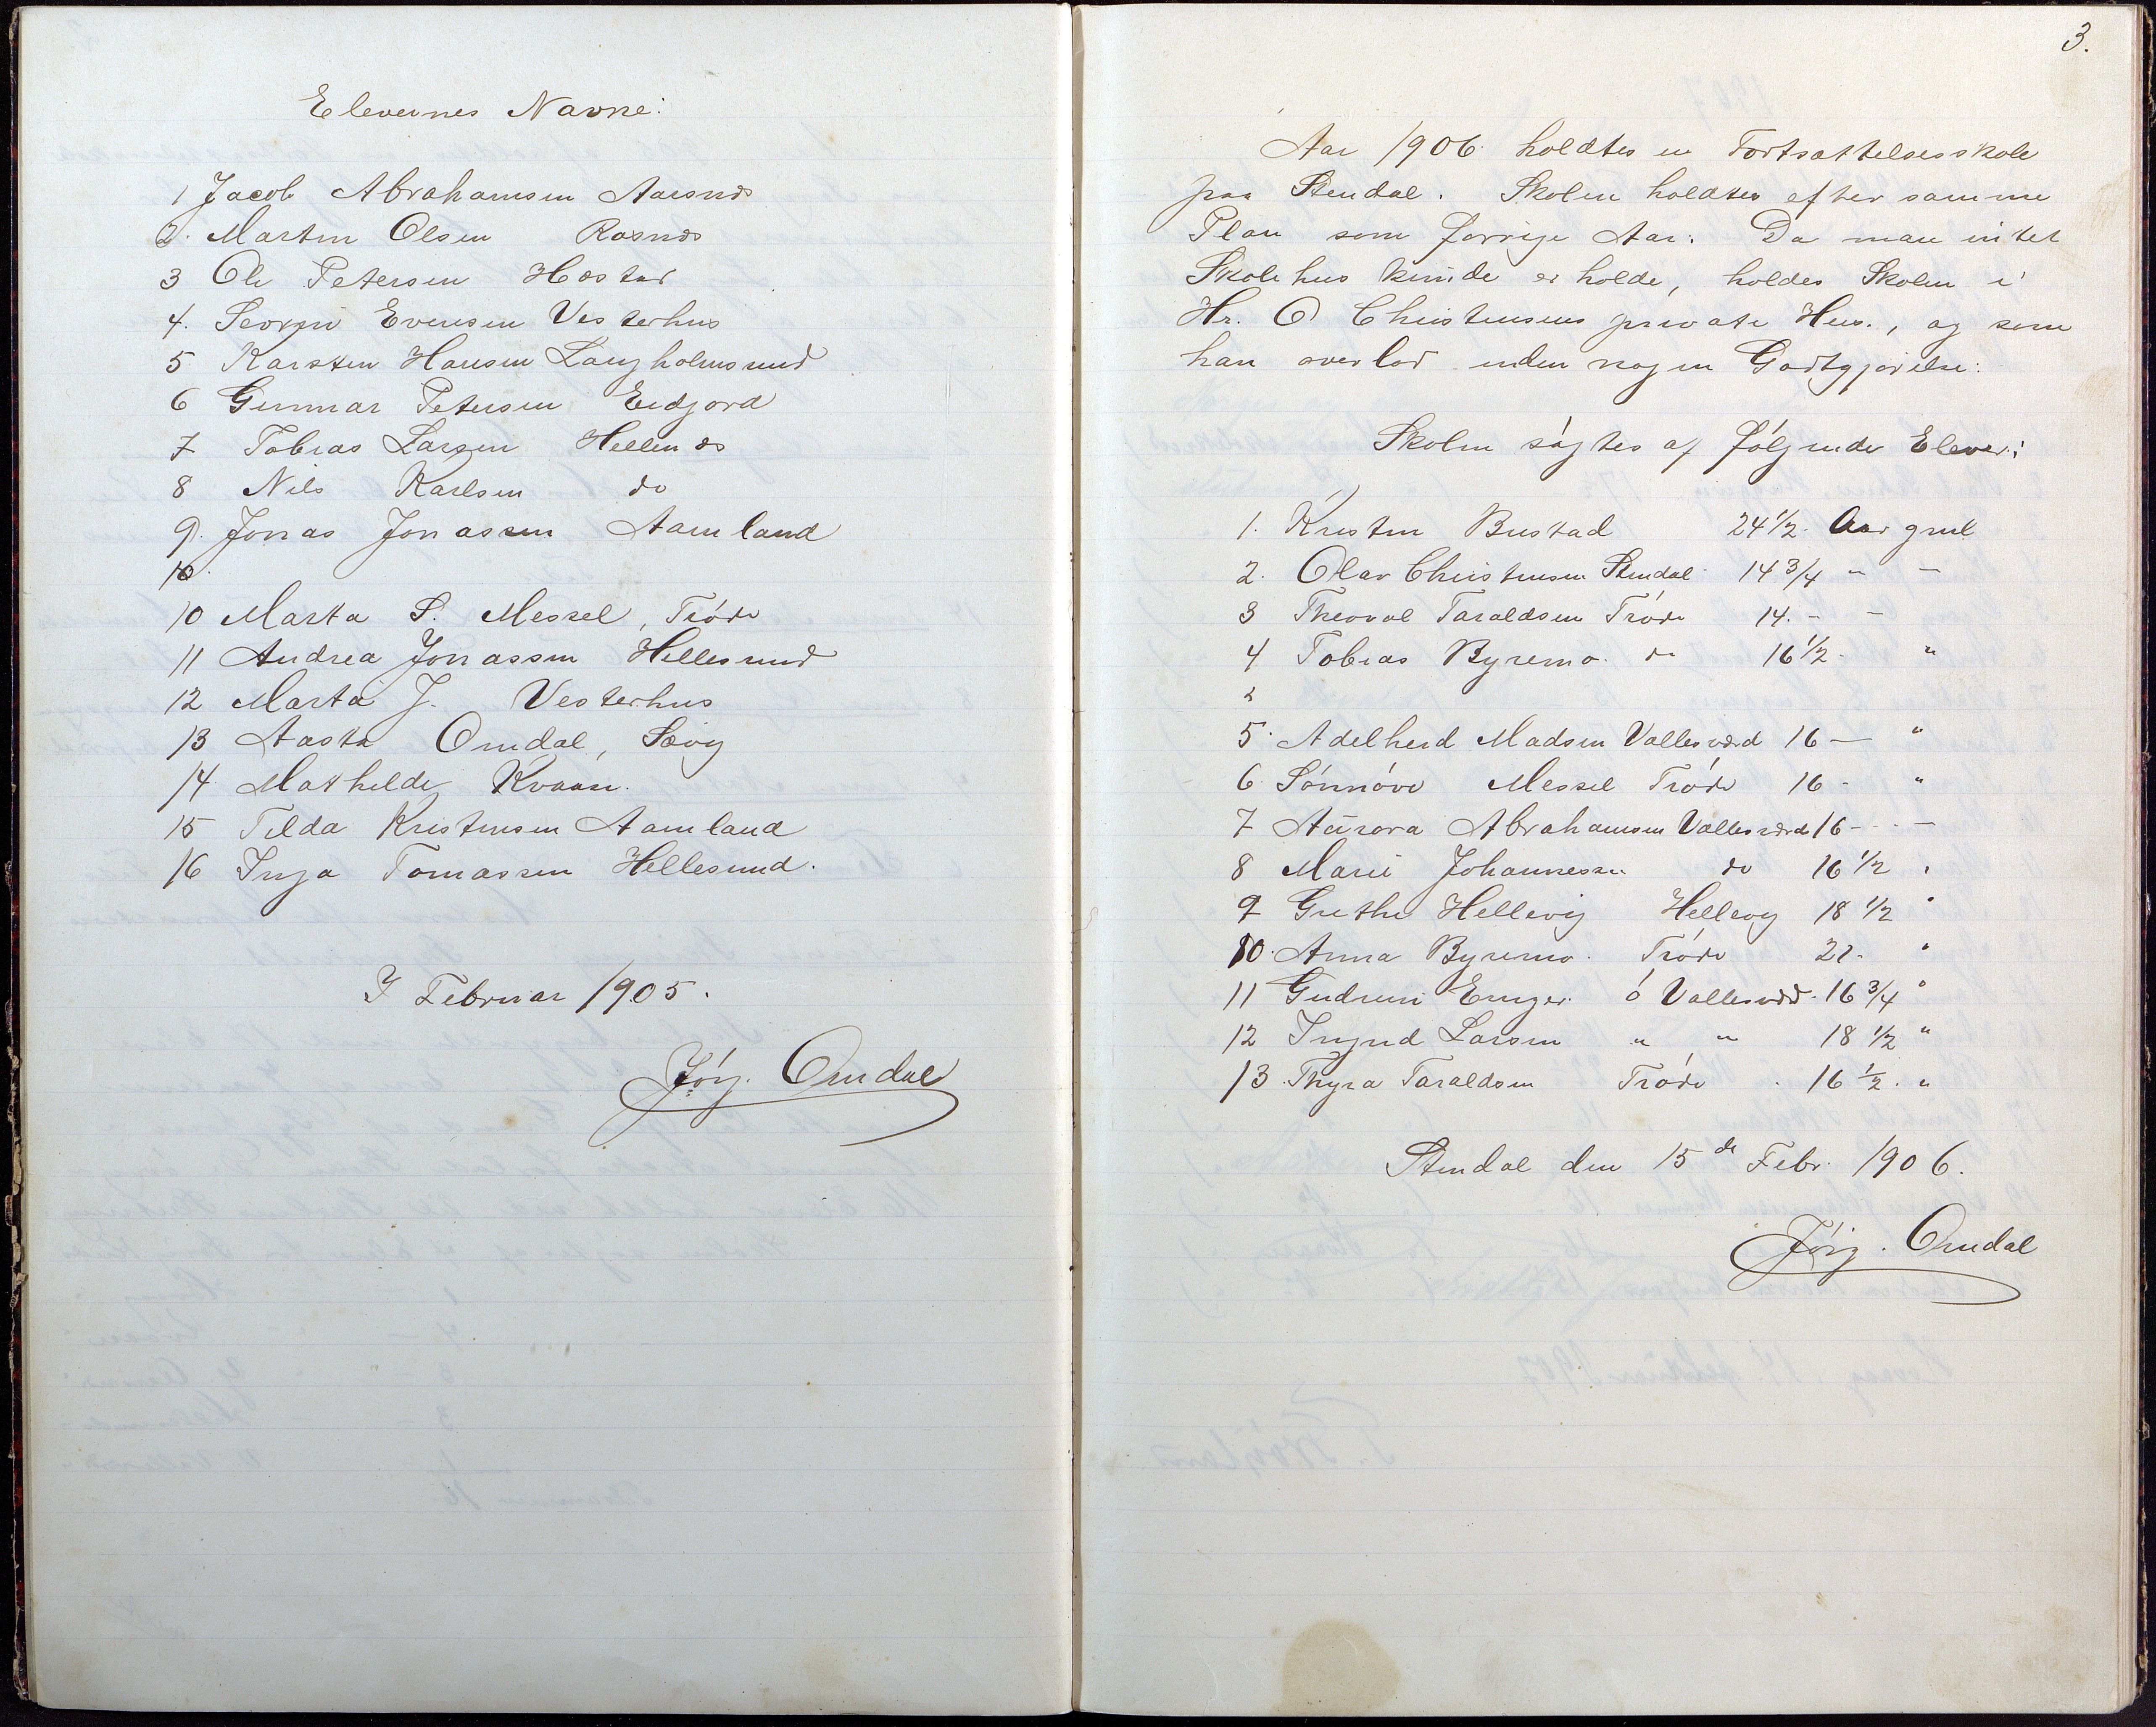 Elevernes Navne:
1 Jacob Abrahamsen Aaesnæs
2. Martin Olsen Rosnæs
3 Ole Petersen Hæstad
4. Georgin Evensen Vesterhus
5 Karsten Hansen Langholmsund
6 Gunnar Petersen Eidjord
7 Tobias Larsen Hellenæs
8 Nils Karlsen do
9. Jonas Jonassen Aamland
10.
10 Marta S. Messel, Trøde
11 Andrea Jonassen Hellesund
12 Marta J. Vesterhus
13 Aasta Omdal, Søvig
14 Mathilde Kvaase.
15 Tilda Kristensen Aamland
16 Inga Tomassen Hellesund.
I Februar 1905.
Jørg. Omdal
3.
Aar 1906 holdtes en Fortsættelsesskole
paa Stendal. Skolen holdtes efter samme
Plan som forrige Aar. Da man intet
Skolehus kunde erholde, holdes Skolen i
Hr. O Christensens private Hus., og som
han overlod uden nogen Godtgjørelse:
Skolen søgtes af følgende Elever:
1. Kristen Bustad 24 1/2. Aar gml
2. Olav Christensen Stendal 14 3/4 " -
3 Theovol Taraldsen Trøde 14. - -
4 Tobias Byremo. do 16 1/2. "
5. Adelheid Madsen Vallesværd 16 - "
6. Sønnøve Messel Trøde 16 - "
7 Aurora Abrahamsen Vallesværd 16 - -
8 Marie Johannessen do 16 1/2 "
9 Grethe Hellevig Hellevig 18 1/2 "
10. Anna Byremo. Trøde 21. "
11 Gudrun Unger. ó Vallesværd. 16 3/4 "
12 Ingrid Larsen " " 18 1/2 "
13. Thyra Taraldsen Trøde . 16 1/2. "
Stendal den 15 de Febr. 1906.
Jørg. Omdal